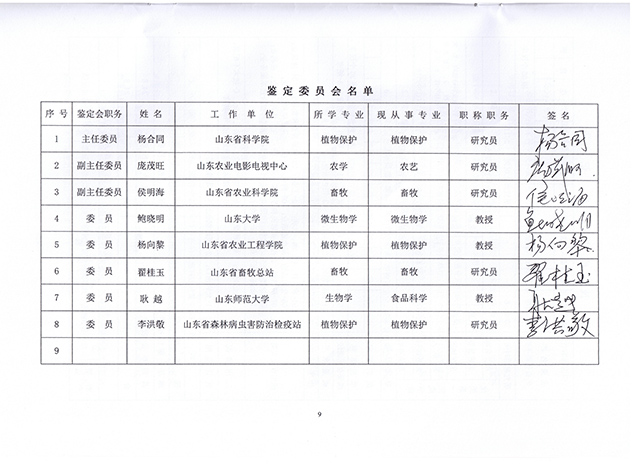 鉴定委员会名单
序号 鉴定会职务 姓名 工作单位 所学专业 现从事专业 职称职务 签名
1 主任委员 杨合同 山东省科学院 植物保护 植物保护 研究员 杨合同
2 副主任委员 庞茂旺 山东农业电影电视中心 农学 农艺 研究员 庞茂旺
3 副主任委员 侯明海 山东省农业科学院 畜牧 畜牧 研究员 侯明海
4 委员 鲍晓明 山东大学 微生物学 微生物学 教授 鲍晓明
5 委员 杨向黎 山东省农业工程学院 植物保护 植物保护 教授 杨向黎
6 委员 翟桂玉 山东省畜牧总站 畜牧 畜牧 研究员 翟桂玉
7 委员 耿越 山东师范大学 生物学 食品科学 教授
8 委员 李洪敬 山东省森林病虫害防治检疫站 植物保护 植物保护 研究员 李洪敬
9
9